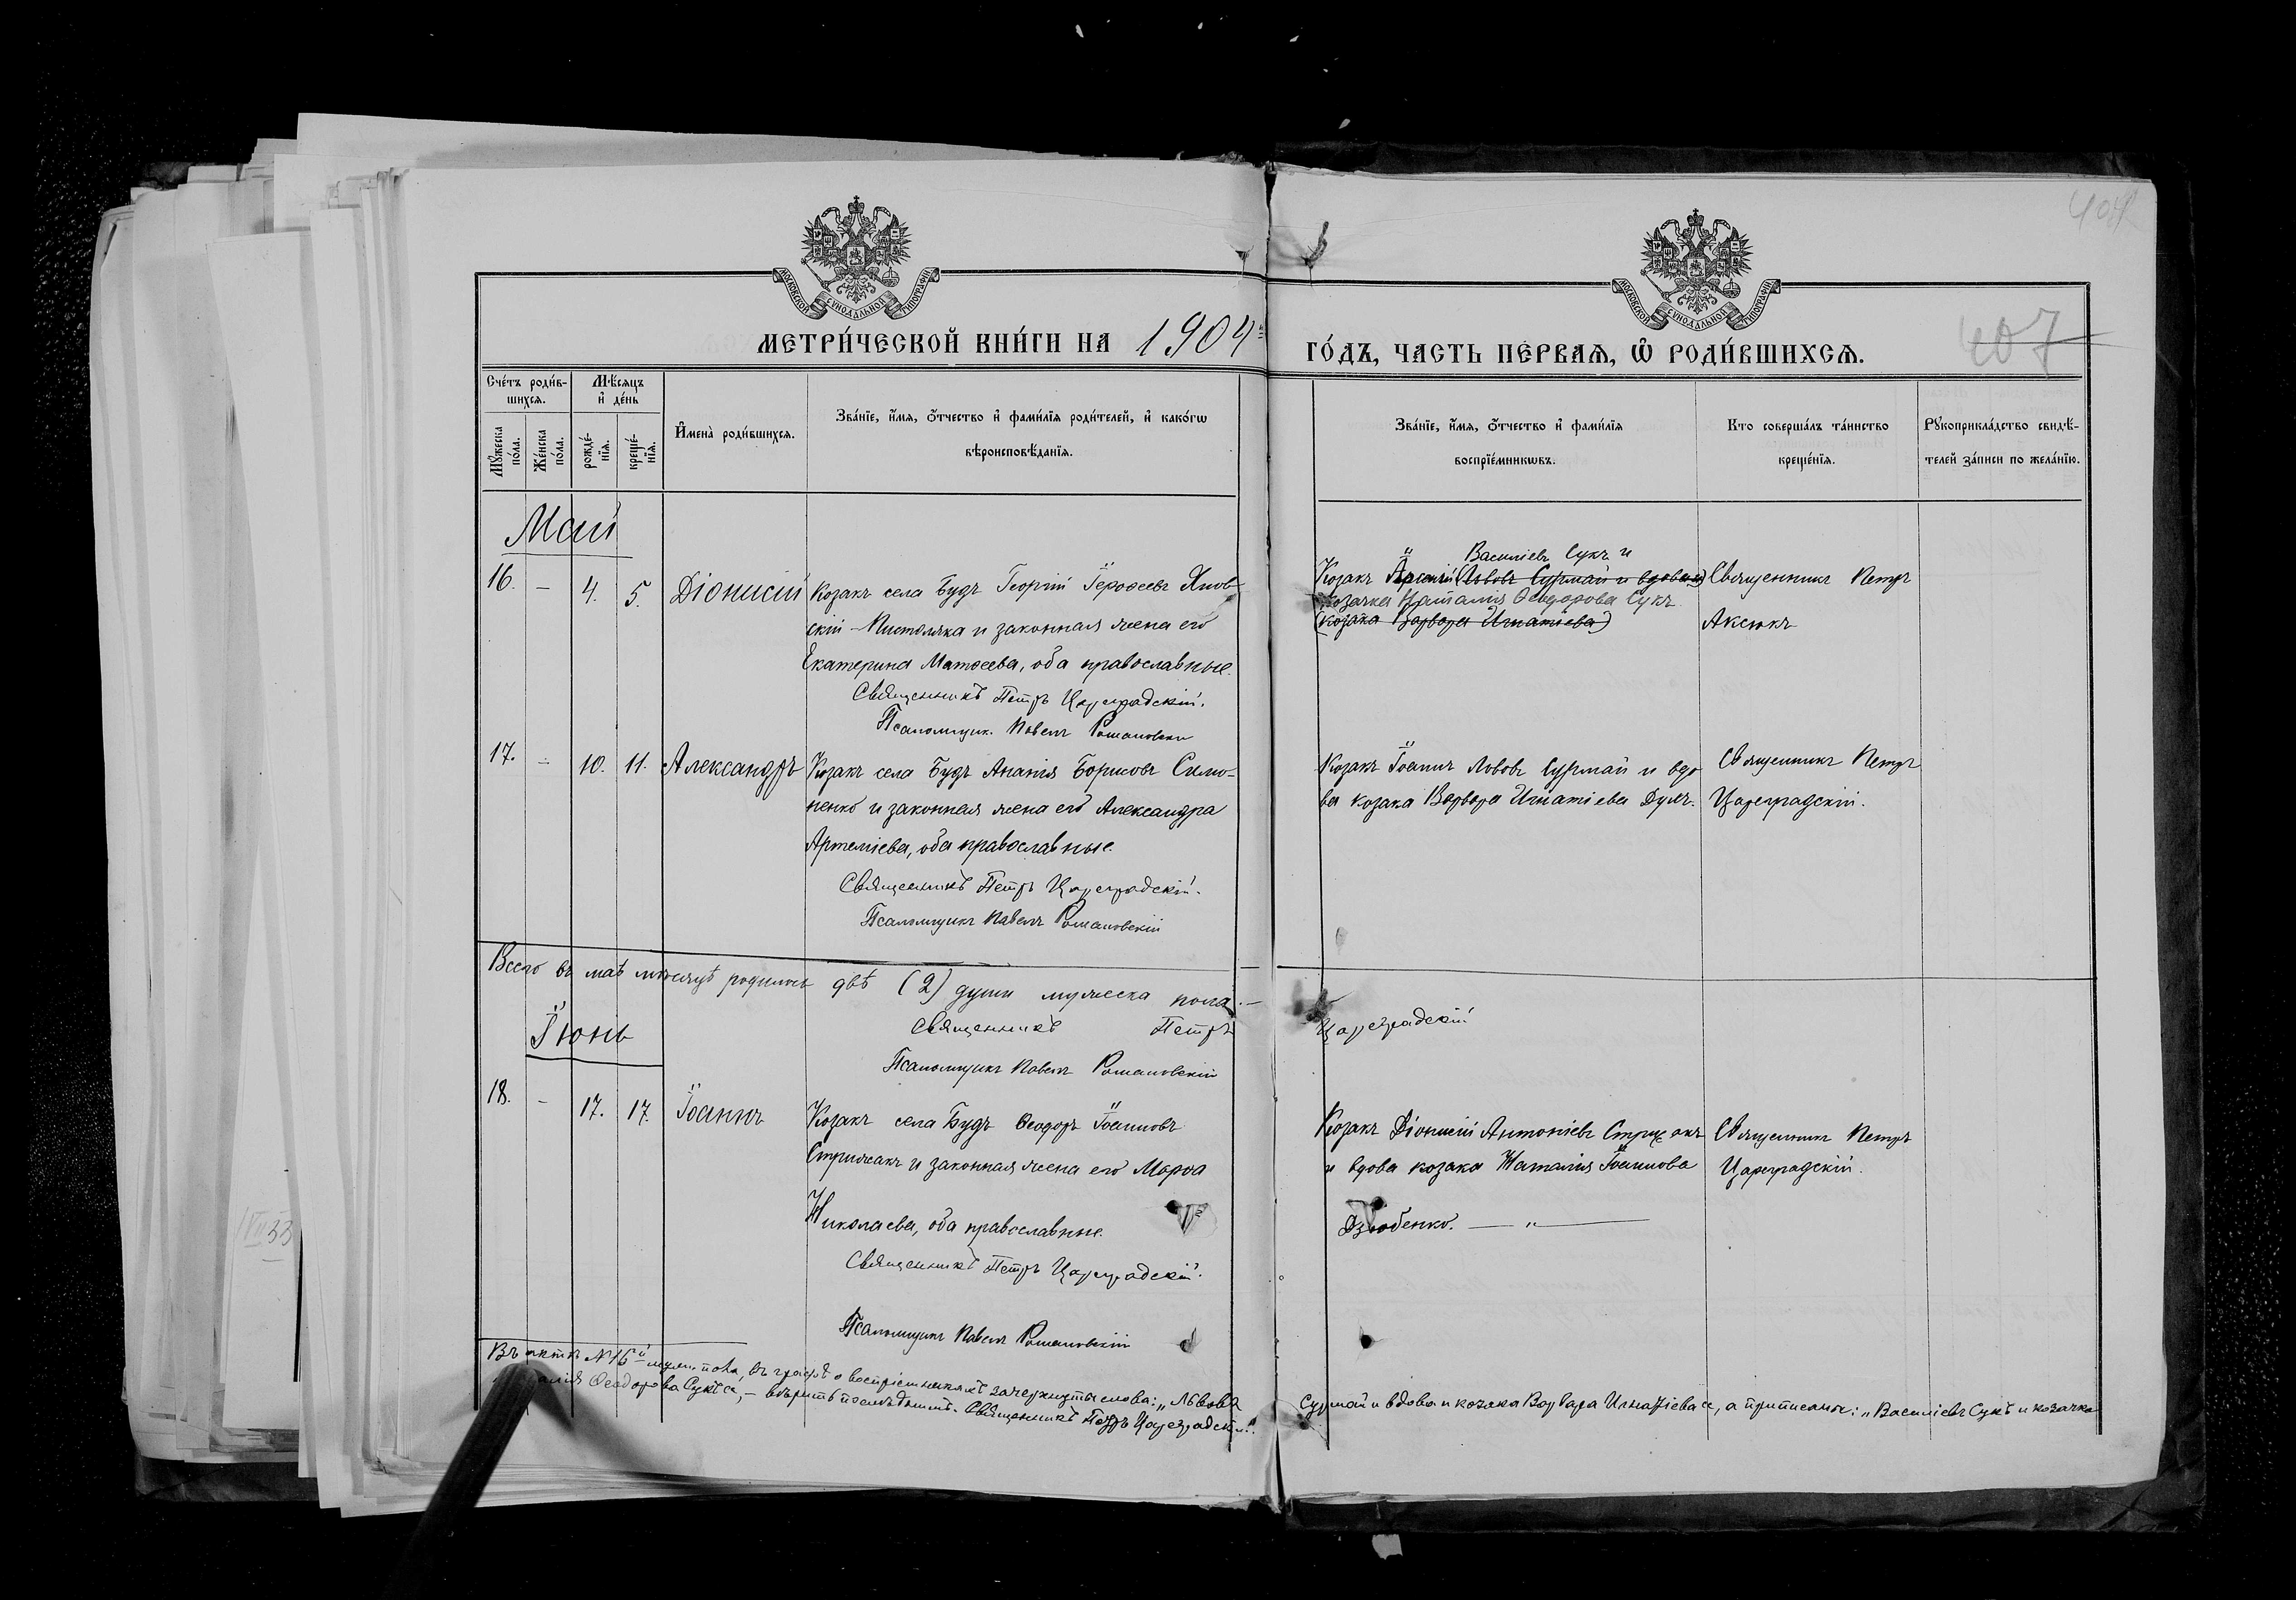 404
407
МОСКОВСКОЙ СУНОДАЛЬНОЙ ТИПОГРАФІИ
МОСКОВСКОЙ СУНОДАЛЬНОЙ ТИПОГРАФІИ
МЕТРИ́ЧЕСКОЙ КНИ́ГИ НА 1904 ГО́ДЪ, ЧАСТЬ ПЕ́РВАѦ, Ѽ РОДИ́ВШИХСѦ.
Сче́тъ роди́в-
шихсѧ.
Мꙋ́жеска по́ла.
Же́нска по́ла.
Мѣ́сѧцъ
и҆ де́нь
рожде́-
нїѧ.
креще́-
нїѧ.
И҆мена̀ роди́вшихсѧ.
Зва́нїе, и҆́мѧ, ѻ҆́тчество и҆ фами́лїѧ роди́телей, и҆ како́гѡ
вѣроисповѣ́данїѧ.
Зва́нїе, и҆́мѧ, ѻ҆́тчество и҆ фами́лїѧ
воспрїе́мникѡвъ.
Кто соверша́лъ та́инство
креще́нїѧ.
Рꙋкоприкла́дство свидѣ́-
телей за́писи по жела́нїю.
Май
16. — 4. 5. Діонисій
Козакъ села Будъ Георгій Ѳеровъ
скій - и законная жена его
Екатерина Матѳеева, оба православные.
Священникъ Петръ Цареградскій.
Псаломщик. Павелъ Романовскій
Василіевъ Сукъ и
Козакъ (Львовъ Сурмай и вдова)
козачка Наталія Ѳеодорова Сукъ
(козака Варвара Игнатіева)
Священникъ Петръ
Аксюкъ
17. — 10. 11. Александръ
Козакъ села Будъ Ананія Борисовъ Симо-
ненко и законная жена его Александра
Артеміева, оба православные.
Священникъ Петръ Цареградскій.
Псаломщикъ Павелъ Романовскій
Козакъ Іоаннъ Львовъ Сурмай и вдо
ва козака Варвара Игнатіева
Священникъ Петръ
Цареградскій.
Всего въ маѣ мѣсяцѣ родилось двѣ (2) души мужеска пола. —
Священникъ Петръ Цареградскій
Псаломщикъ Павелъ Романовскій
Іюнь
18. — 17. 17. Іоаннъ
Козакъ села Будъ Ѳеодоръ Іоанновъ
Стрижакъ и законная жена его Марѳа
Николаева, оба православные.
Священникъ Петръ Цареградскій.
Псаломщикъ Павелъ Романовскій
Козакъ Діонисій Антоніевъ Стрижакъ
и вдова козака Наталія Іоаннова
Дзюбенко. — „ —
Священникъ Петръ
Цареградскій.
Въ актѣ №16й муж. пола, въ графѣ о воспріемникахъ зачеркнуты слова: „Львовъ Сурмай и вдова и козака Варвара Игнатіева“, а приписаны: „Василіевъ Сукъ и козачка
Ѳеодорова Сукъ“, — вѣрить послѣднимъ. Священникъ Петръ Цареградскій.
VII 33